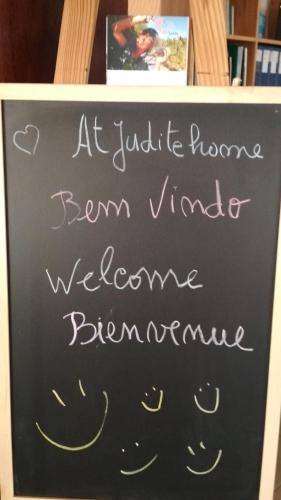 At Juditehome
Bem Vindo
Welcome
Bienvenue